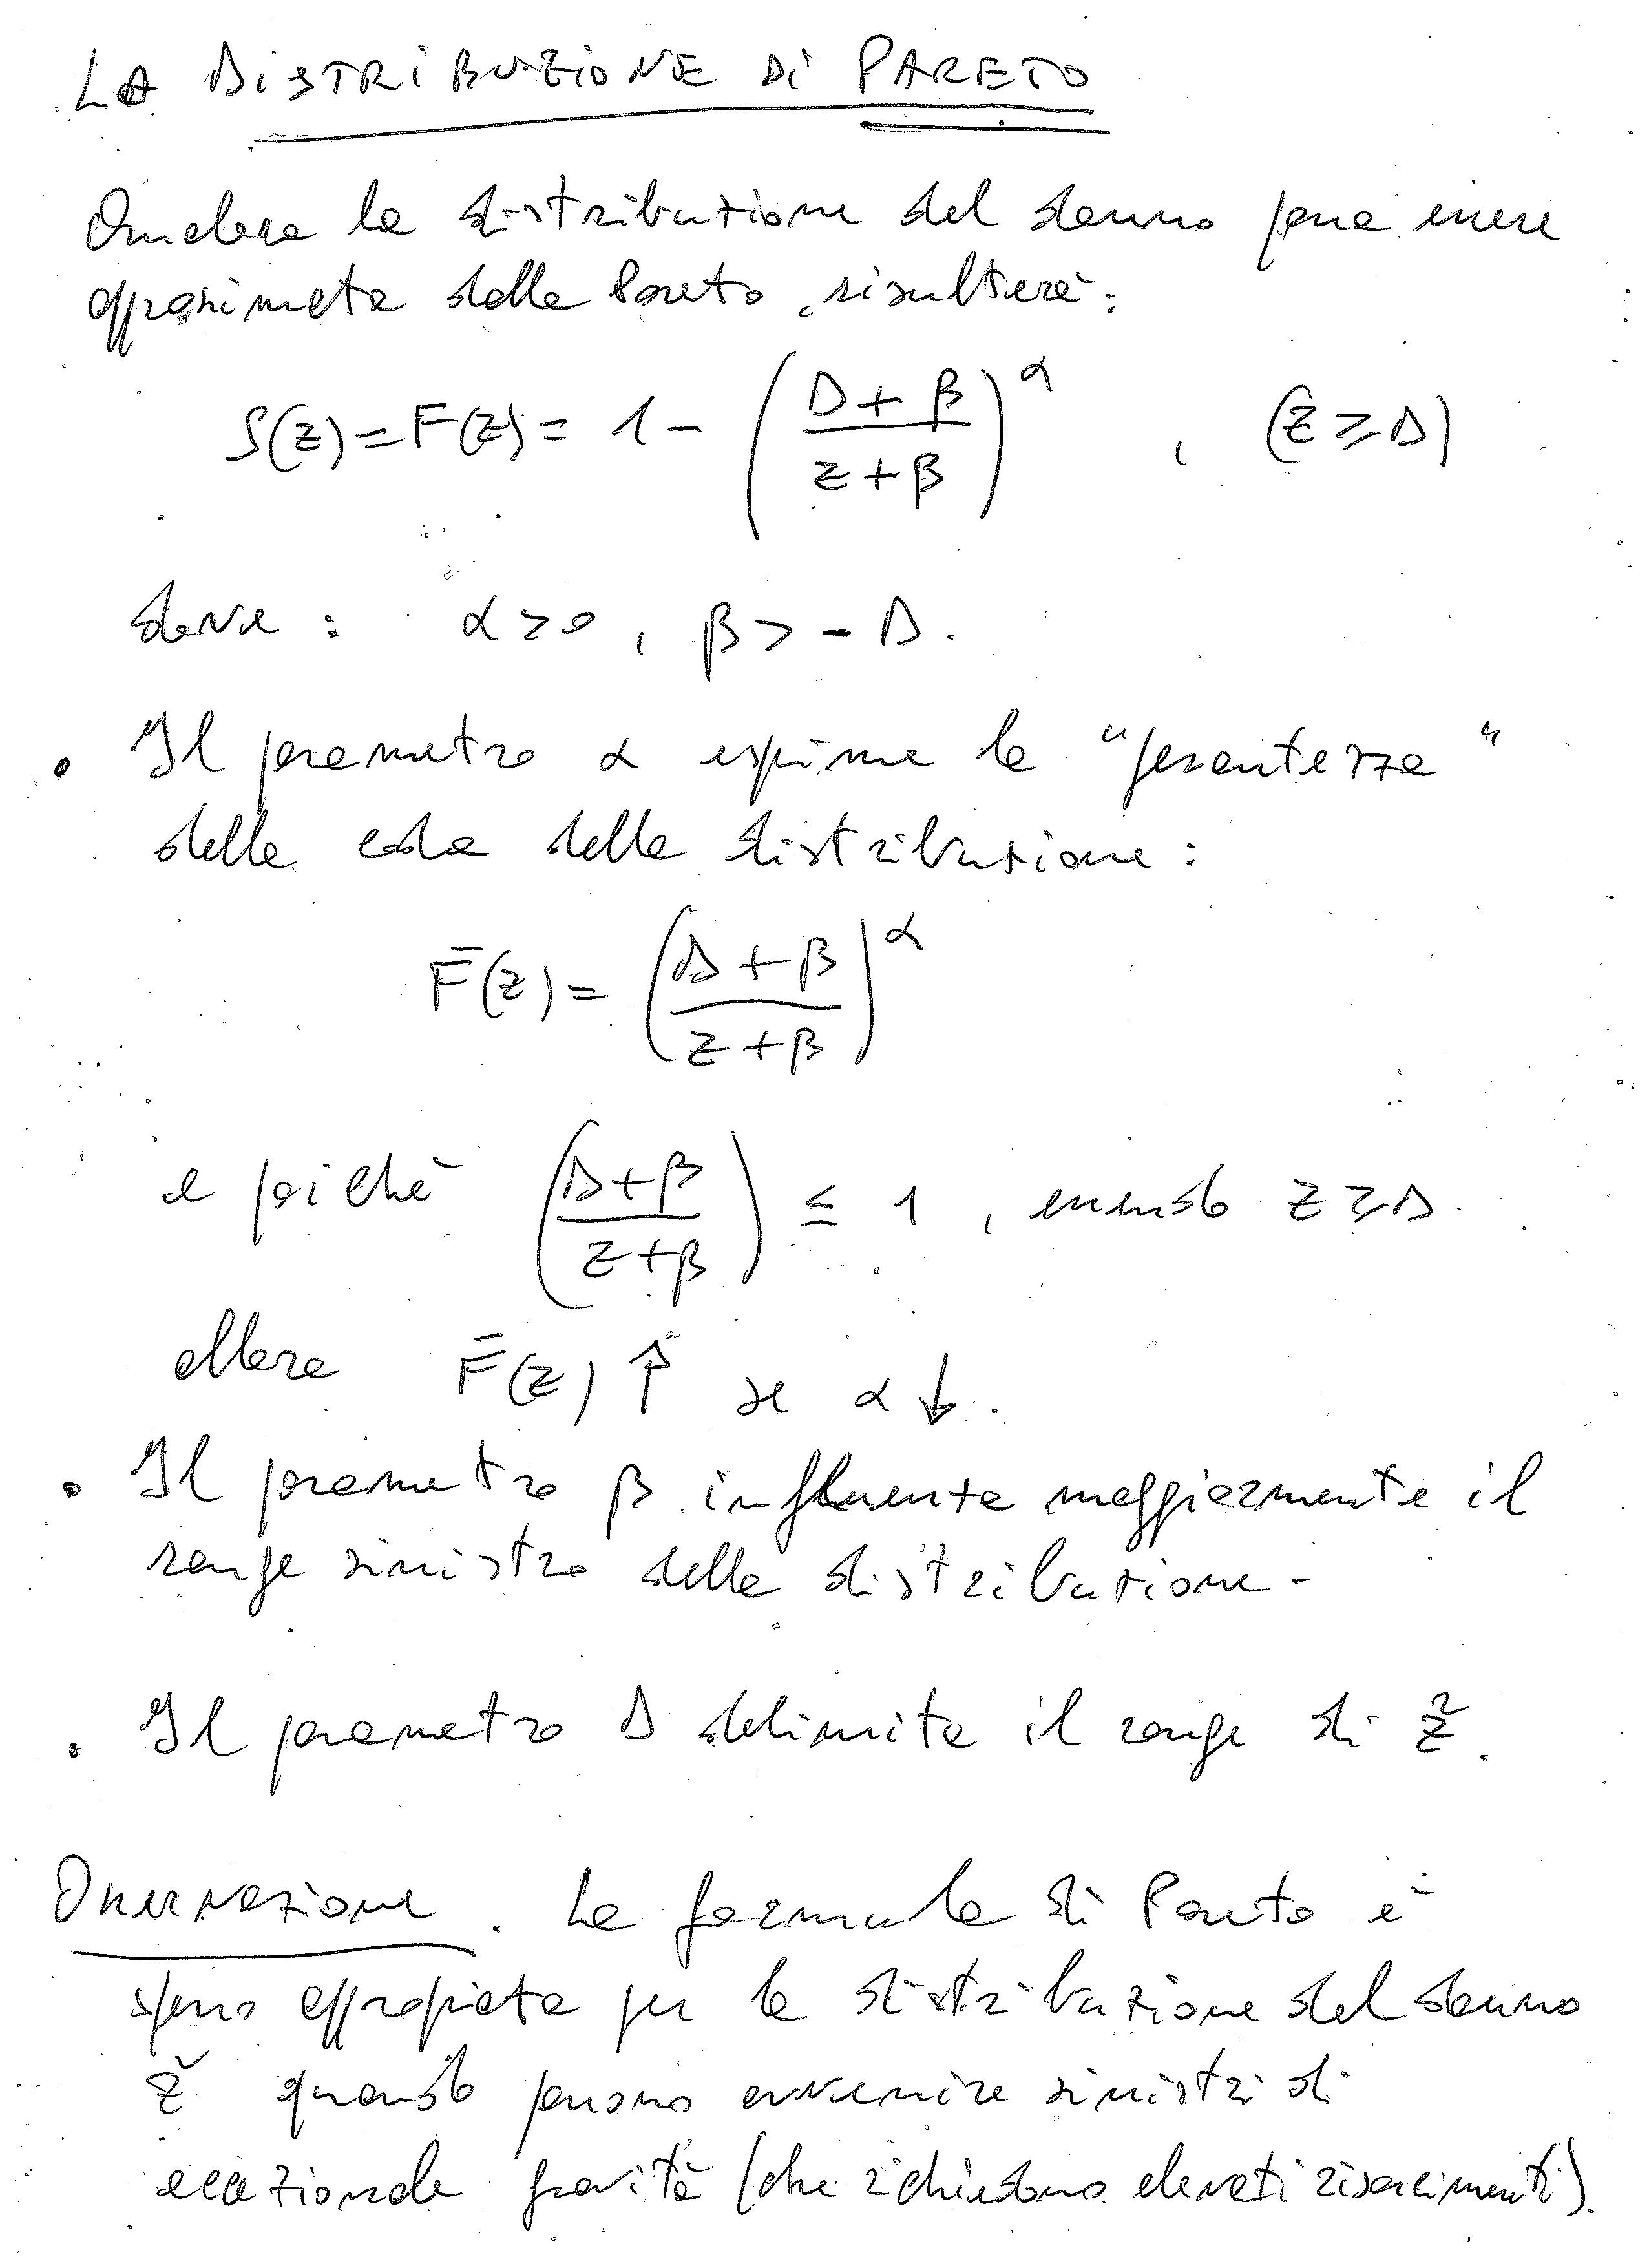 LA DISTRIBUZIONE DI PARETO
Qualora la distribuzione del danno possa essere
approssimata dalla Pareto, risulterà:
S(z) = F(z) = 1 - ( (D + β) / (z + β) )^α , (z ≥ D)
dove : α > 0 , β > - D.
• Il parametro α esprime la "pesantezza"
della coda della distribuzione :
F̄(z) = ( (D + β) / (z + β) )^α
e poichè ( (D + β) / (z + β) ) ≤ 1 , essendo z ≥ D.
allora F̄(z) ↑ se α ↓.
• Il parametro β influenza maggiormente il
range sinistro della distribuzione -
• Il parametro D delimita il range di z̃.
Osservazione. La formula di Pareto è
spesso appropiata per la distribuzione del danno
z̃ quando possono avvenire sinistri di
eccezionale gravità (che richiedono elevati risarcimenti).